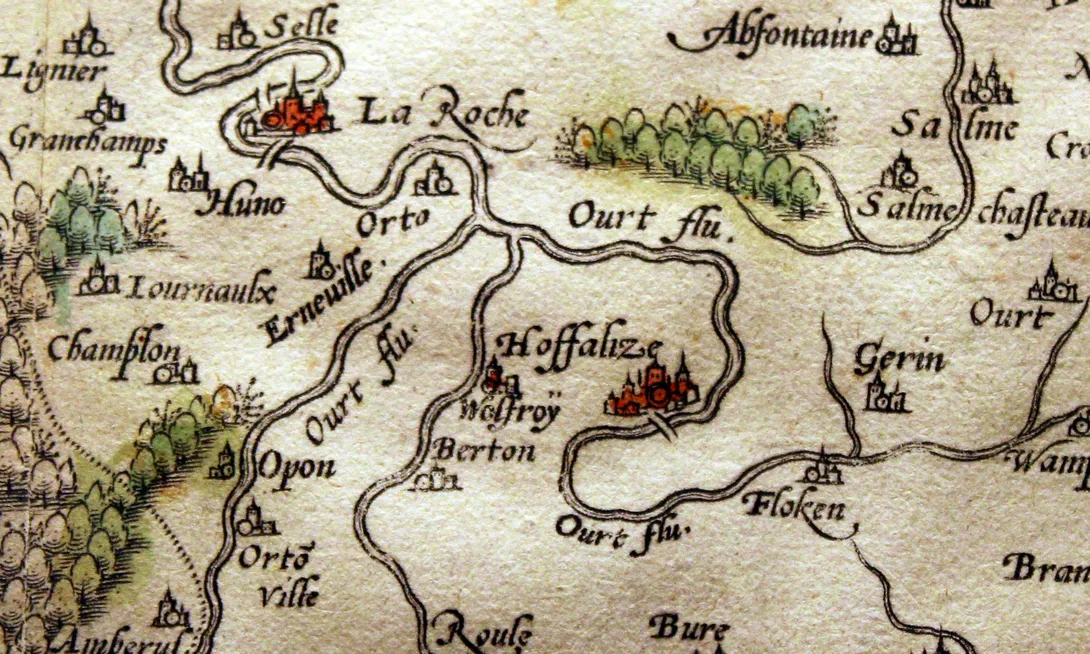 Selle
Abfontaine
Lignier
La Roche
Salme
Granchamps
Huno
Orto
Ourt flu.
Salme chasteau
Iournaulx
Erneuille.
Ourt
Champlon
Hoffalize
Gerin
Ourt flu.
Wolfroÿ
Berton
Opon
Wamp
Floken
Ourt flu.
Ortō
Ville
Bran
Amberul:
Roule
Bure